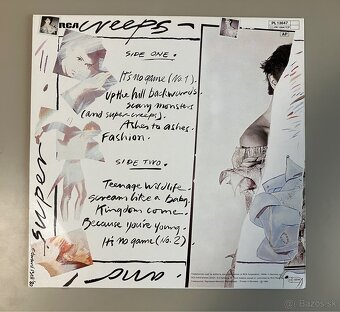 RCA creeps
PL 13647
SIDE ONE.
It's no game (no. 1).
up the hill backwards.
scary monsters
(and super creeps).
Ashes to ashes.
Fashion.
SIDE TWO.
Teenage Wildlife.
Scream like a baby.
Kingdom come.
Because you're young.
It's no game (no. 2)
super
and
Bazos.sk